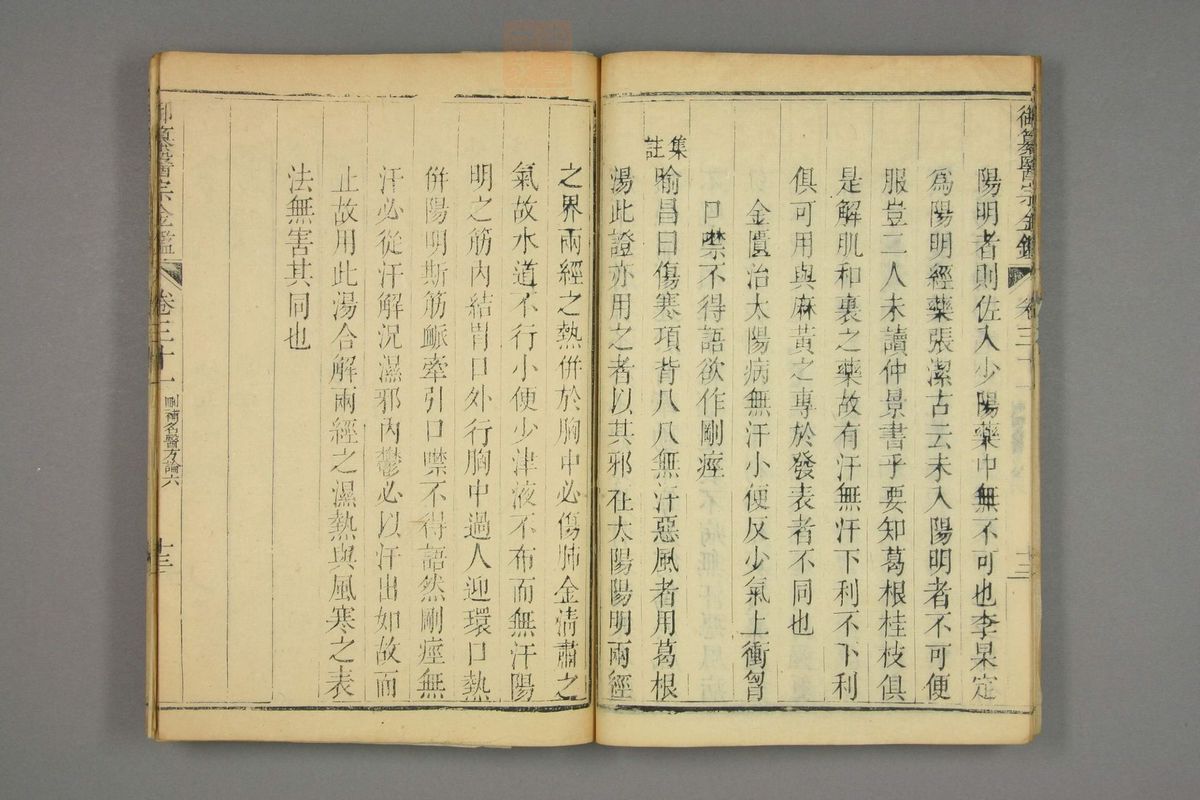 御纂醫宗金鑑 卷三十一 十三
陽明者則佐入少陽藥中無不可也李杲定
爲陽明經藥張潔古云未入陽明者不可便
服豈二人未讀仲景書乎要知葛根桂枝俱
是解肌和裏之藥故有汗無汗下利不下利
俱可用與麻黃之專於發表者不同也
金匱治太陽病無汗小便反少氣上衝胷
口噤不得語欲作剛痙
集註
喻昌曰傷寒項背几几無汗惡風者用葛根
湯此證亦用之者以其邪在太陽陽明兩經
之界兩經之熱併於胸中必傷肺金清肅之
氣故水道不行小便少津液不布而無汗陽
明之筋內結胃口外行胸中過人迎環口熱
併陽明斯筋脈牽引口噤不得語然剛痙無
汗必從汗解況濕邪內鬱必以汗出如故而
止故用此湯合解兩經之濕熱與風寒之表
法無害其同也
御纂醫宗金鑑 卷三十一 刪補名醫方論六 十三